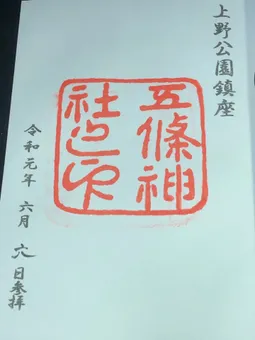 上野公園鎮座
五條神
社之印
令和元年 六月 六日参拝